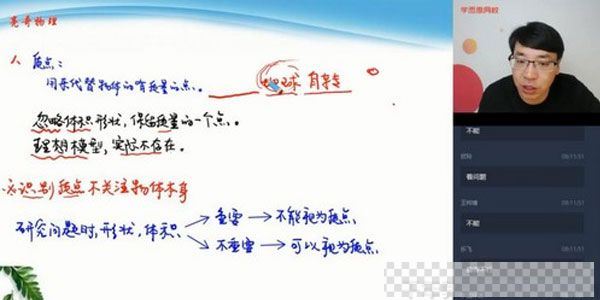 亮哥物理
1、质点：
用来代替物体的有质量的点。
地球 自转
忽略体积形状，保留质量的一个点。
理想模型，实际不存在。
识别质点不关注物体本身
研究问题时，形状，体积
重要 → 不能视为质点
不重要 → 可以视为质点
学而思网校
不能
08:11:51
看问题
08:11:51
不能
08:11:51